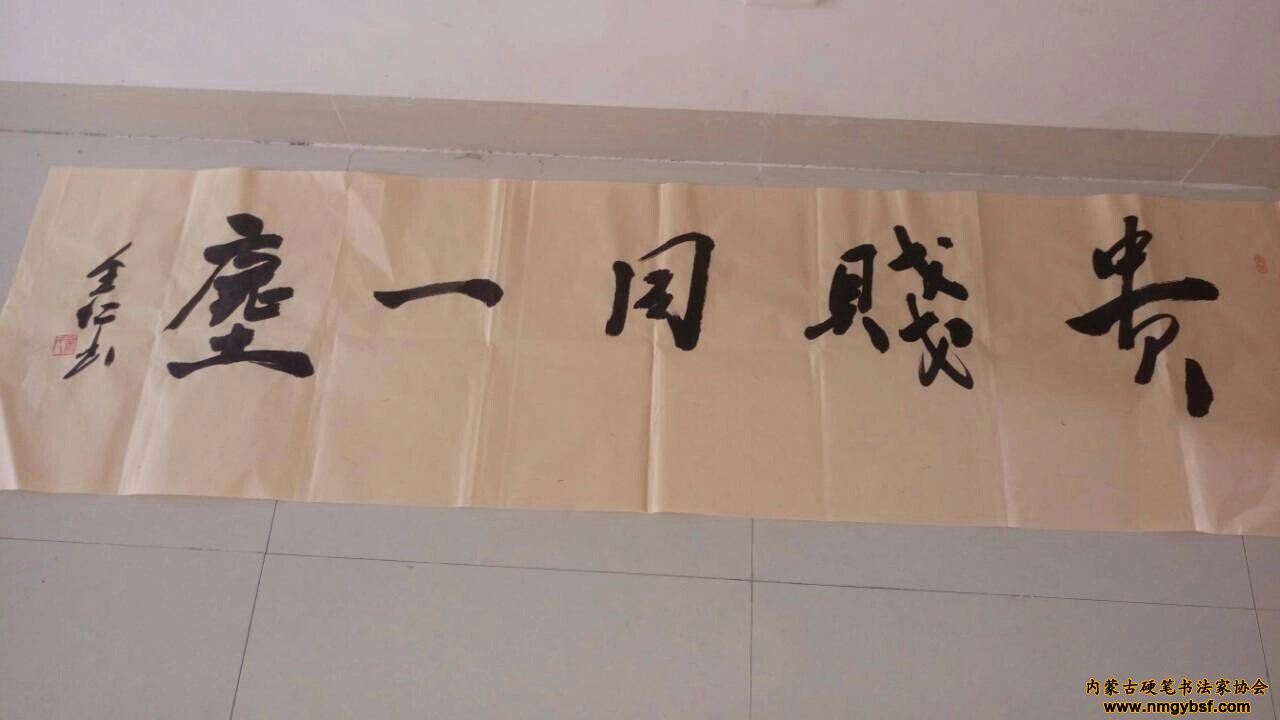 貴賤同一塵
金仁书
内蒙古硬笔书法家协会
www.nmgybsf.com